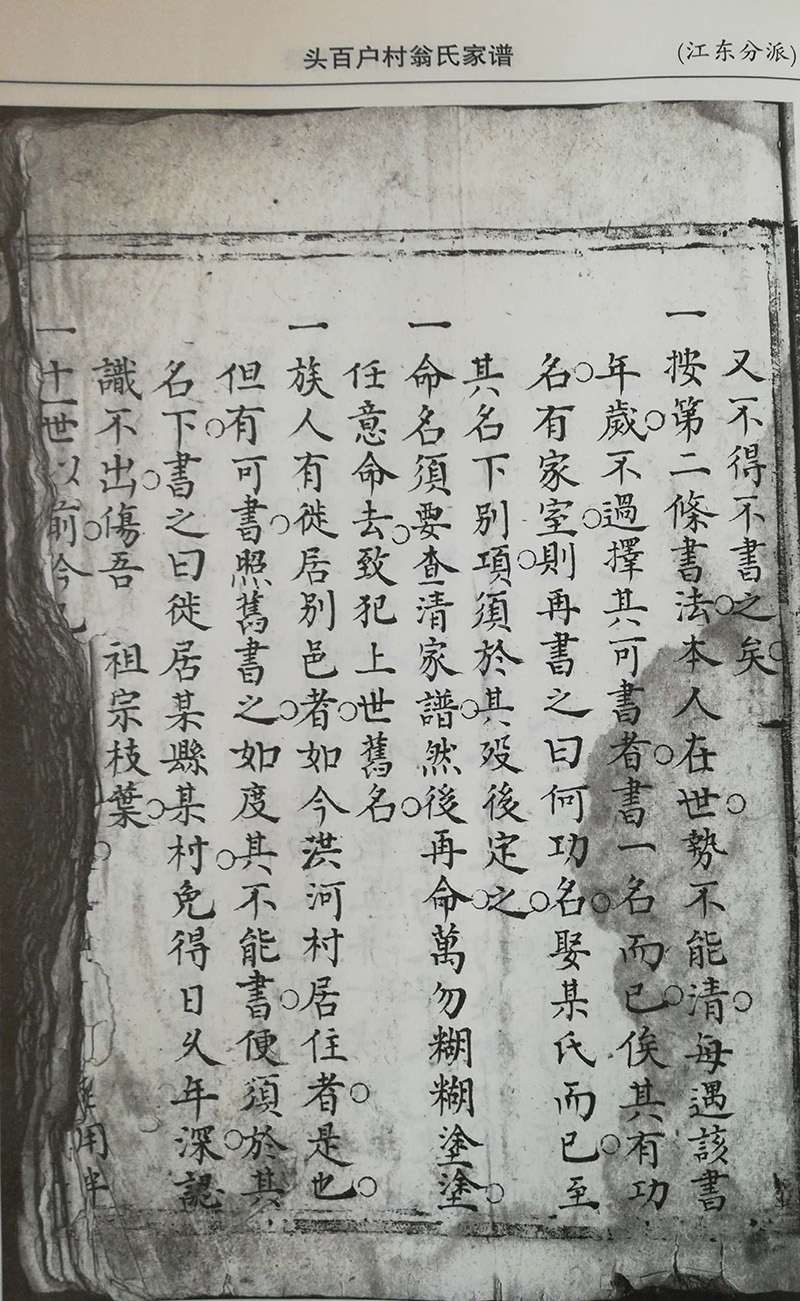 头百户村翁氏家谱
(江东分派)
又不得不書之矣
一按第二條書法本人在世勢不能清每遇該書
年歲不過擇其可書者書一名而已俟其有功
名有家室則再書之曰何功名娶某氏而已至
其名下别項須於其殁後定之
一命名須要查清家譜然後再命萬勿糊糊塗塗
任意命去致犯上世舊名
一族人有徙居别邑者如今洪河村居住者是也
但有可書照舊書之如度其不能書便須於其
名下書之曰徙居某縣某村免得日久年深認
識不出傷吾 祖宗枝葉
一十一世以前
用半